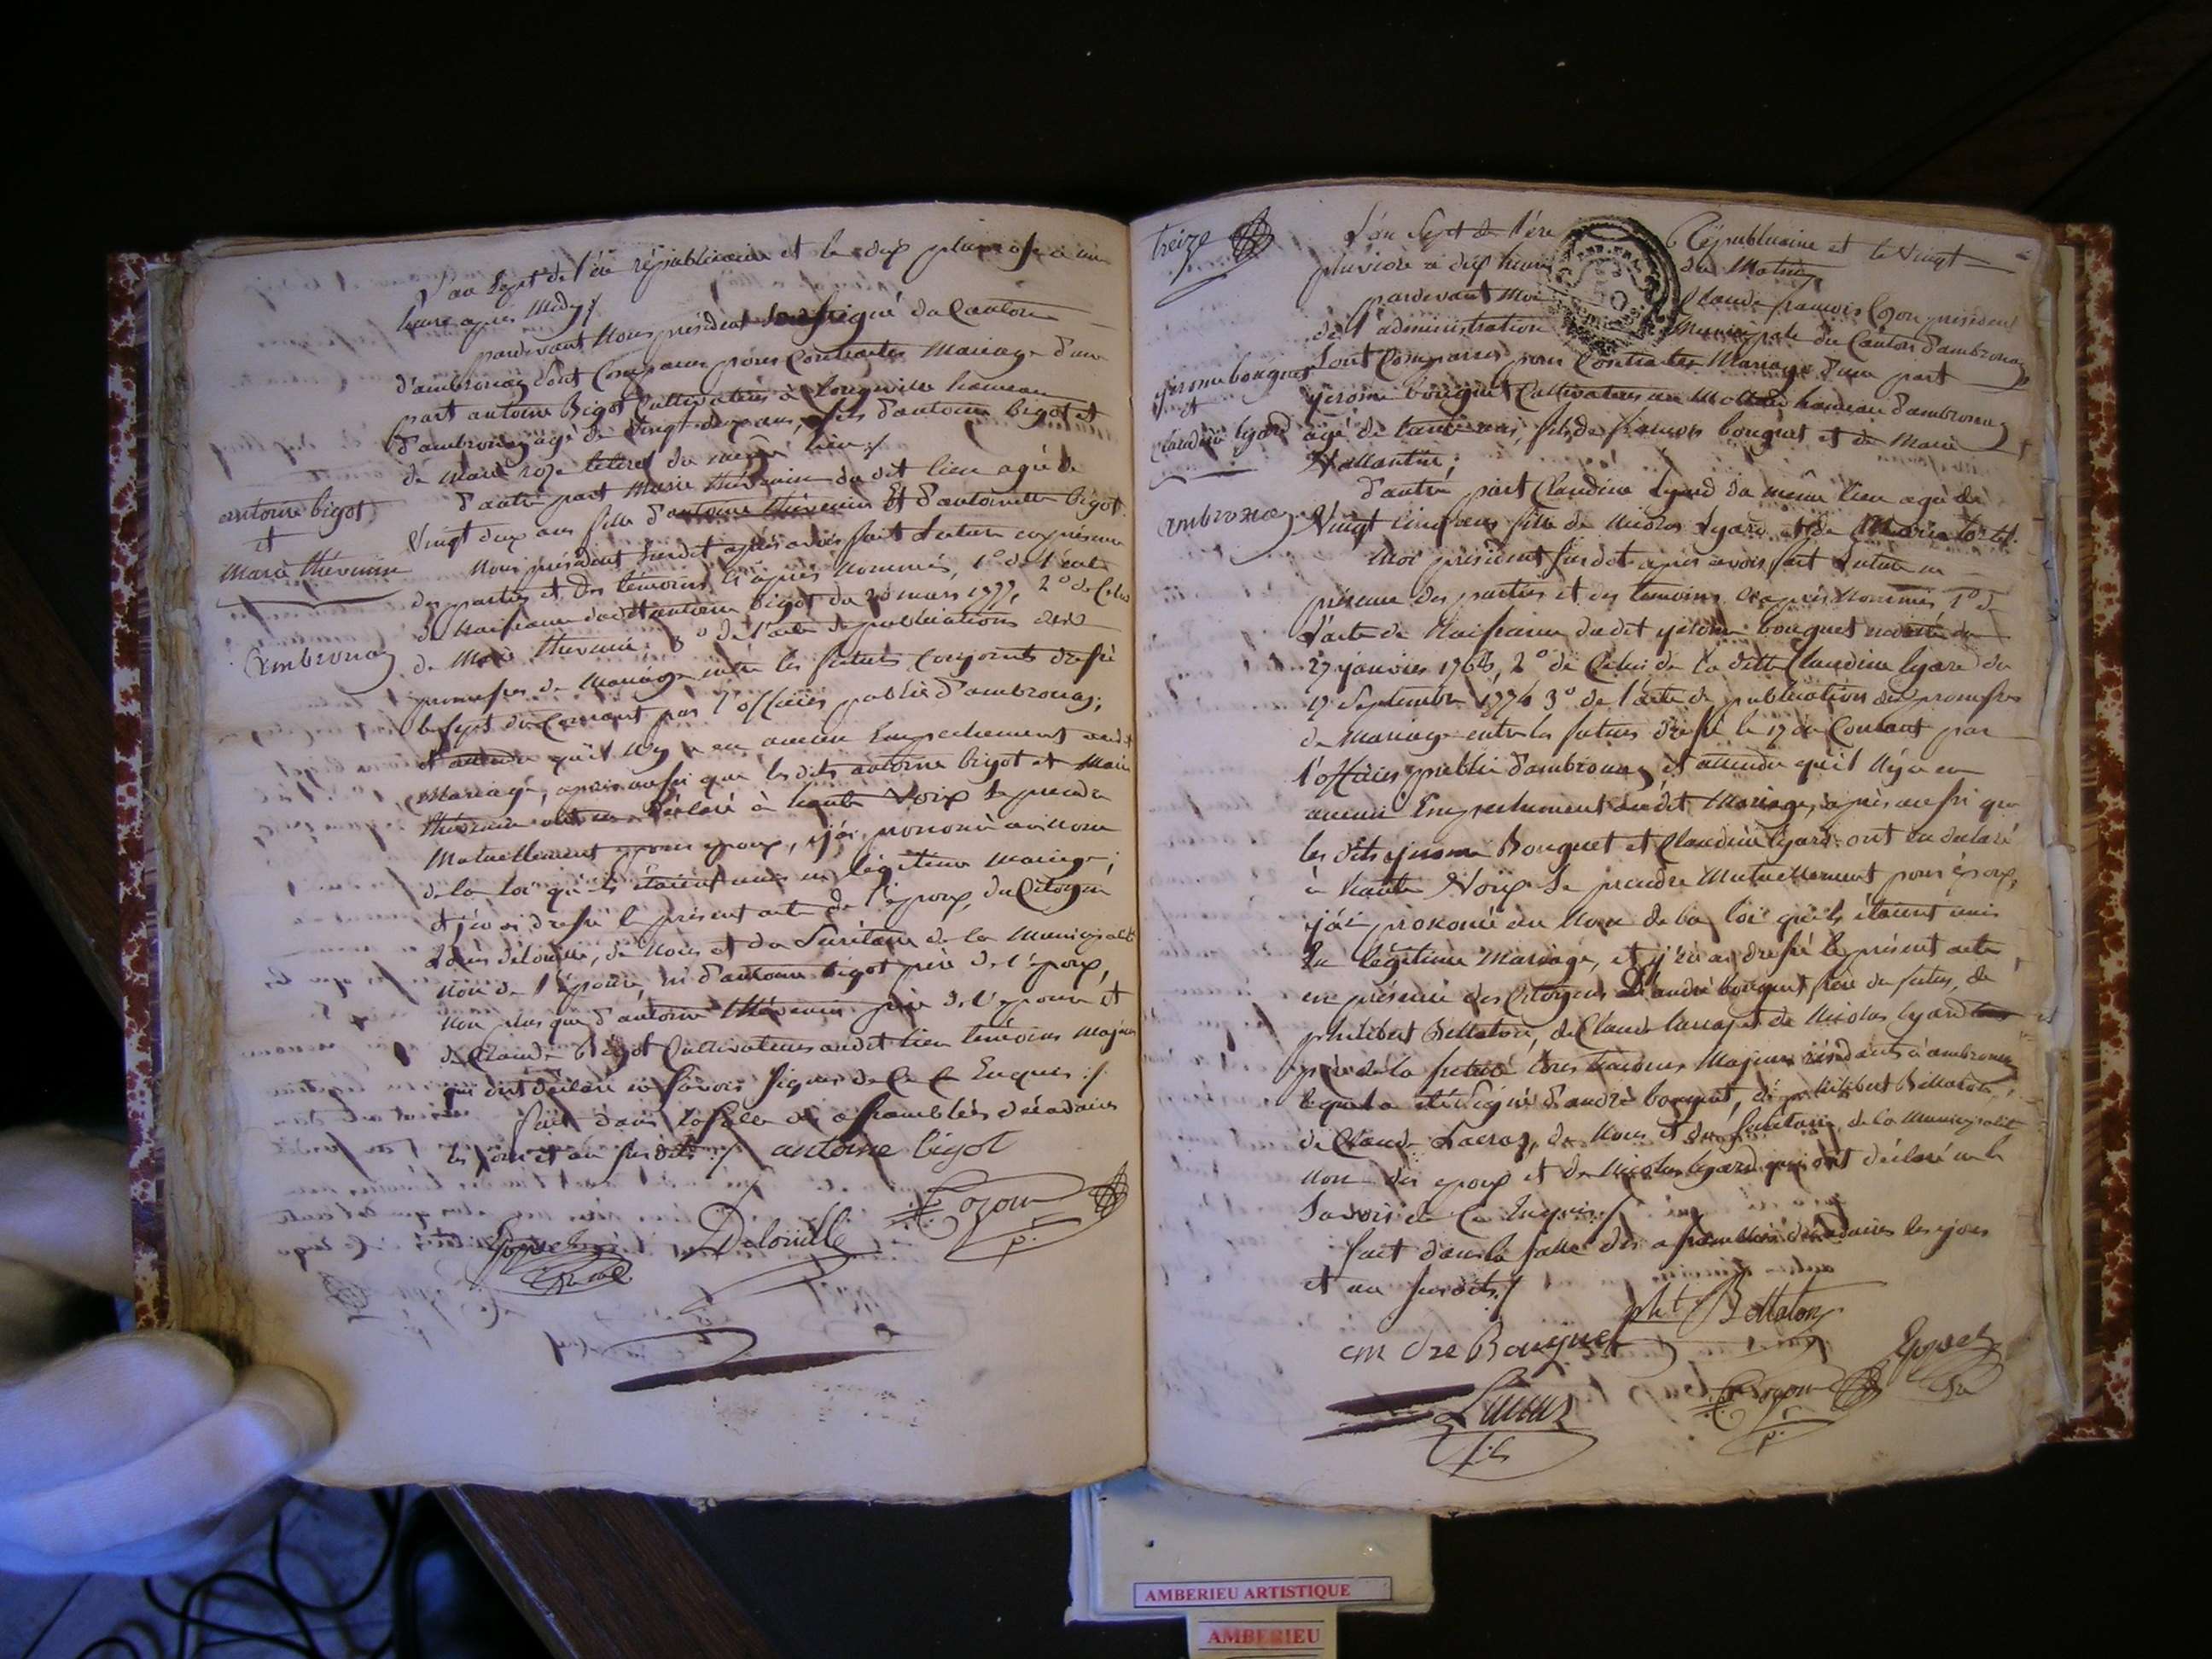 L'an Sept de l'ére républicaine et le dix pluviose a une
heure après Midy /
pardevant Nous président soussigné du Canton
d'ambronay sont Comparus pour Contracter Mariage d'une
part antoine Bigot Cultivateur à hameau
d'ambronay agé de vingt deux ans, fils d'antoine Bigot et
de Marie roze du même lieu :/
d'autre part Marie thévenin du dit lieu agée de
Vingt deux ans fille d'antoine thévenin Et d'antoinette bigot.
antoine bigot
et
Marie thévenin
ambronay
Nous président susdit après avoir fait lecture en présence
des parties et des témoins ci après Nommés, 1º de l'acte
de Naissance dudit antoine bigot du 20 mars 1777, 2º de Celui
de Marie thevenin, 3º de l'acte de publications des
promesses de Mariage entre les futurs Conjoints dressé
le sept du Courant par l'officier public d'ambronay;
et attendu qu'il N'y a eu aucun Empechement audit
Mariage, après aussi que les dits antoine bigot et Marie
thévenin ont eu déclaré à haute Voix se prendre
Mutuellement pour epoux, j'ai prononcé au Nom
de la loi qu'ils étaient unis en légitime Mariage;
et j'en ai dressé le présent acte de l'époux, du Citoyen
delouille, de Nous et du Secrétaire de la Municipalité
Non de l'épouse, ni d'antoine bigot père de l'époux,
Non plus que d'antoine thévenin père de l'epouse et
de Claude Bigot Cultivateurs audit lieu témoins Majeurs
qui ont déclaré ne savoir signer de Ce Enquis :/
fait dans la salle des assemblées décadaires
les jour et an susdits :/ antoine bigot
Cozon
p.
Delouille
treize
L'an Sept de l'ére Républicaine et le Vingt
pluviose à dix heures du Matin
pardevant Moi Claude françois Cozon président
de l'administration Municipale du Canton d'ambronay
Sont Comparus pour Contracter Mariage d'une part
jerome bouquet
et
Claudine lyard
ambronay
jerome bouquet Cultivateur au hameau d'ambronay
agé de trente ans, fils de bouquet et de Marie
;
d'autre part Claudine Lyard du même lieu agée de
Vingt Cinq ans fille de Nicolas Lyard et de Marie
Moi président susdit après avoir fait lecture en
présence des parties et des temoins ci après Nommés, 1º de
l'acte de Naissance dudit jerome bouquet du
27 janvier 2º de Celui de la ditte Claudine lyard du
17 Septembre 1774 3º de l'acte de publication des promesses
de Mariage entre les futurs dressé le 17 du Courant par
l'officier public d'ambronay, et attendu qu'il N'y a eu
aucun Empechement audit Mariage, après aussi que
les dits jerome Bouquet et Claudine lyard ont eu déclaré
à haute Voix Se prendre Mutuellement pour époux,
j'ai prononcé au Nom de la loi qu'ils étaient unis
En légitime Mariage, et j'en ai dressé le présent acte
en présence des Citoyens andré bouquet frère du futur, de
philibert Bellaton, de Claude et de Nicolas lyard
père de la future tous temoins Majeurs résidants à ambronay
lequel a été Signé d'andré bouquet, de philibert Bellaton,
de Claude de Nous et du secrétaire de la Municipalité
Non des epoux et de Nicolas lyard qui ont déclaré ne le
Savoir de Ce Enquis :/
fait dans la salle des assemblées décadaires les jour
et an susdits :/
ph.t Bellaton
an dre Bouquet
Cozon
p.
AMBERIEU ARTISTIQUE
AMBERIEU